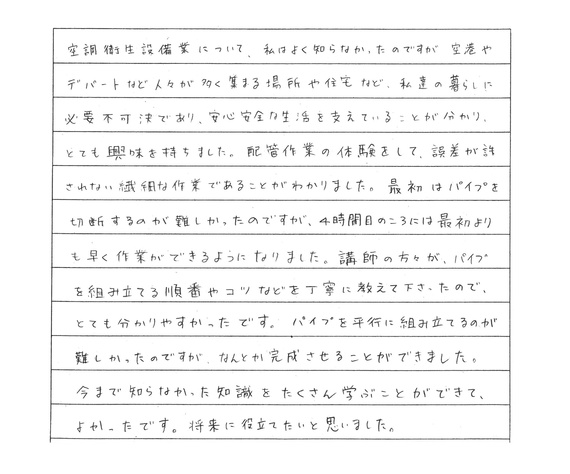 空調衛生設備業について、私はよく知らなかったのですが空港や
デパートなど人々が多く集まる場所や住宅など、私達の暮らしに
必要不可決であり、安心安全な生活を支えていることが分かり、
とても興味を持ちました。配管作業の体験をして、誤差が許
されない繊細な作業であることがわかりました。最初はパイプを
切断するのが難しかったのですが、4時間目のころには最初より
も早く作業ができるようになりました。講師の方々が、パイプ
を組み立てる順番やコツなどを丁寧に教えて下さったので、
とても分かりやすかったです。パイプを平行に組み立てるのが
難しかったのですが、なんとか完成させることができました。
今まで知らなかった知識をたくさん学ぶことができて、
よかったです。将来に役立てたいと思いました。